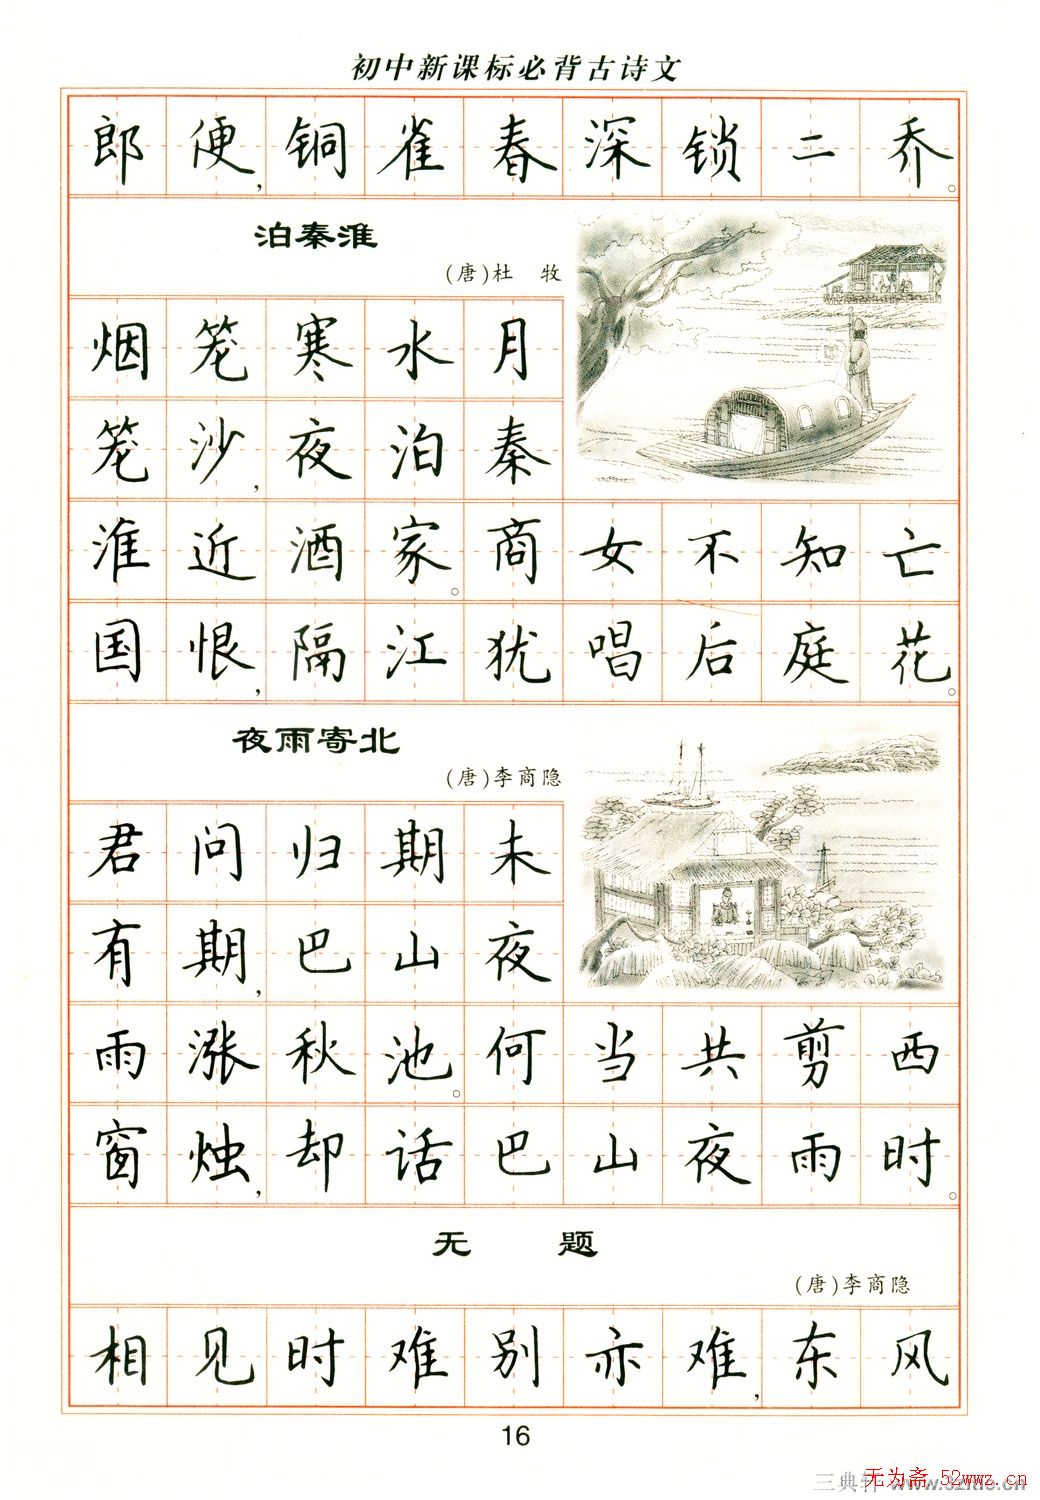 初中新课标必背古诗文
郎便，铜雀春深锁二乔。
泊秦淮
(唐)杜 牧
烟笼寒水月
笼沙，夜泊秦
淮近酒家。商女不知亡
国恨，隔江犹唱后庭花。
夜雨寄北
(唐)李商隐
君问归期未
有期，巴山夜
雨涨秋池。何当共剪西
窗烛，却话巴山夜雨时。
无 题
(唐)李商隐
相见时难别亦难，东风
16
无为斋 52wwz.cn